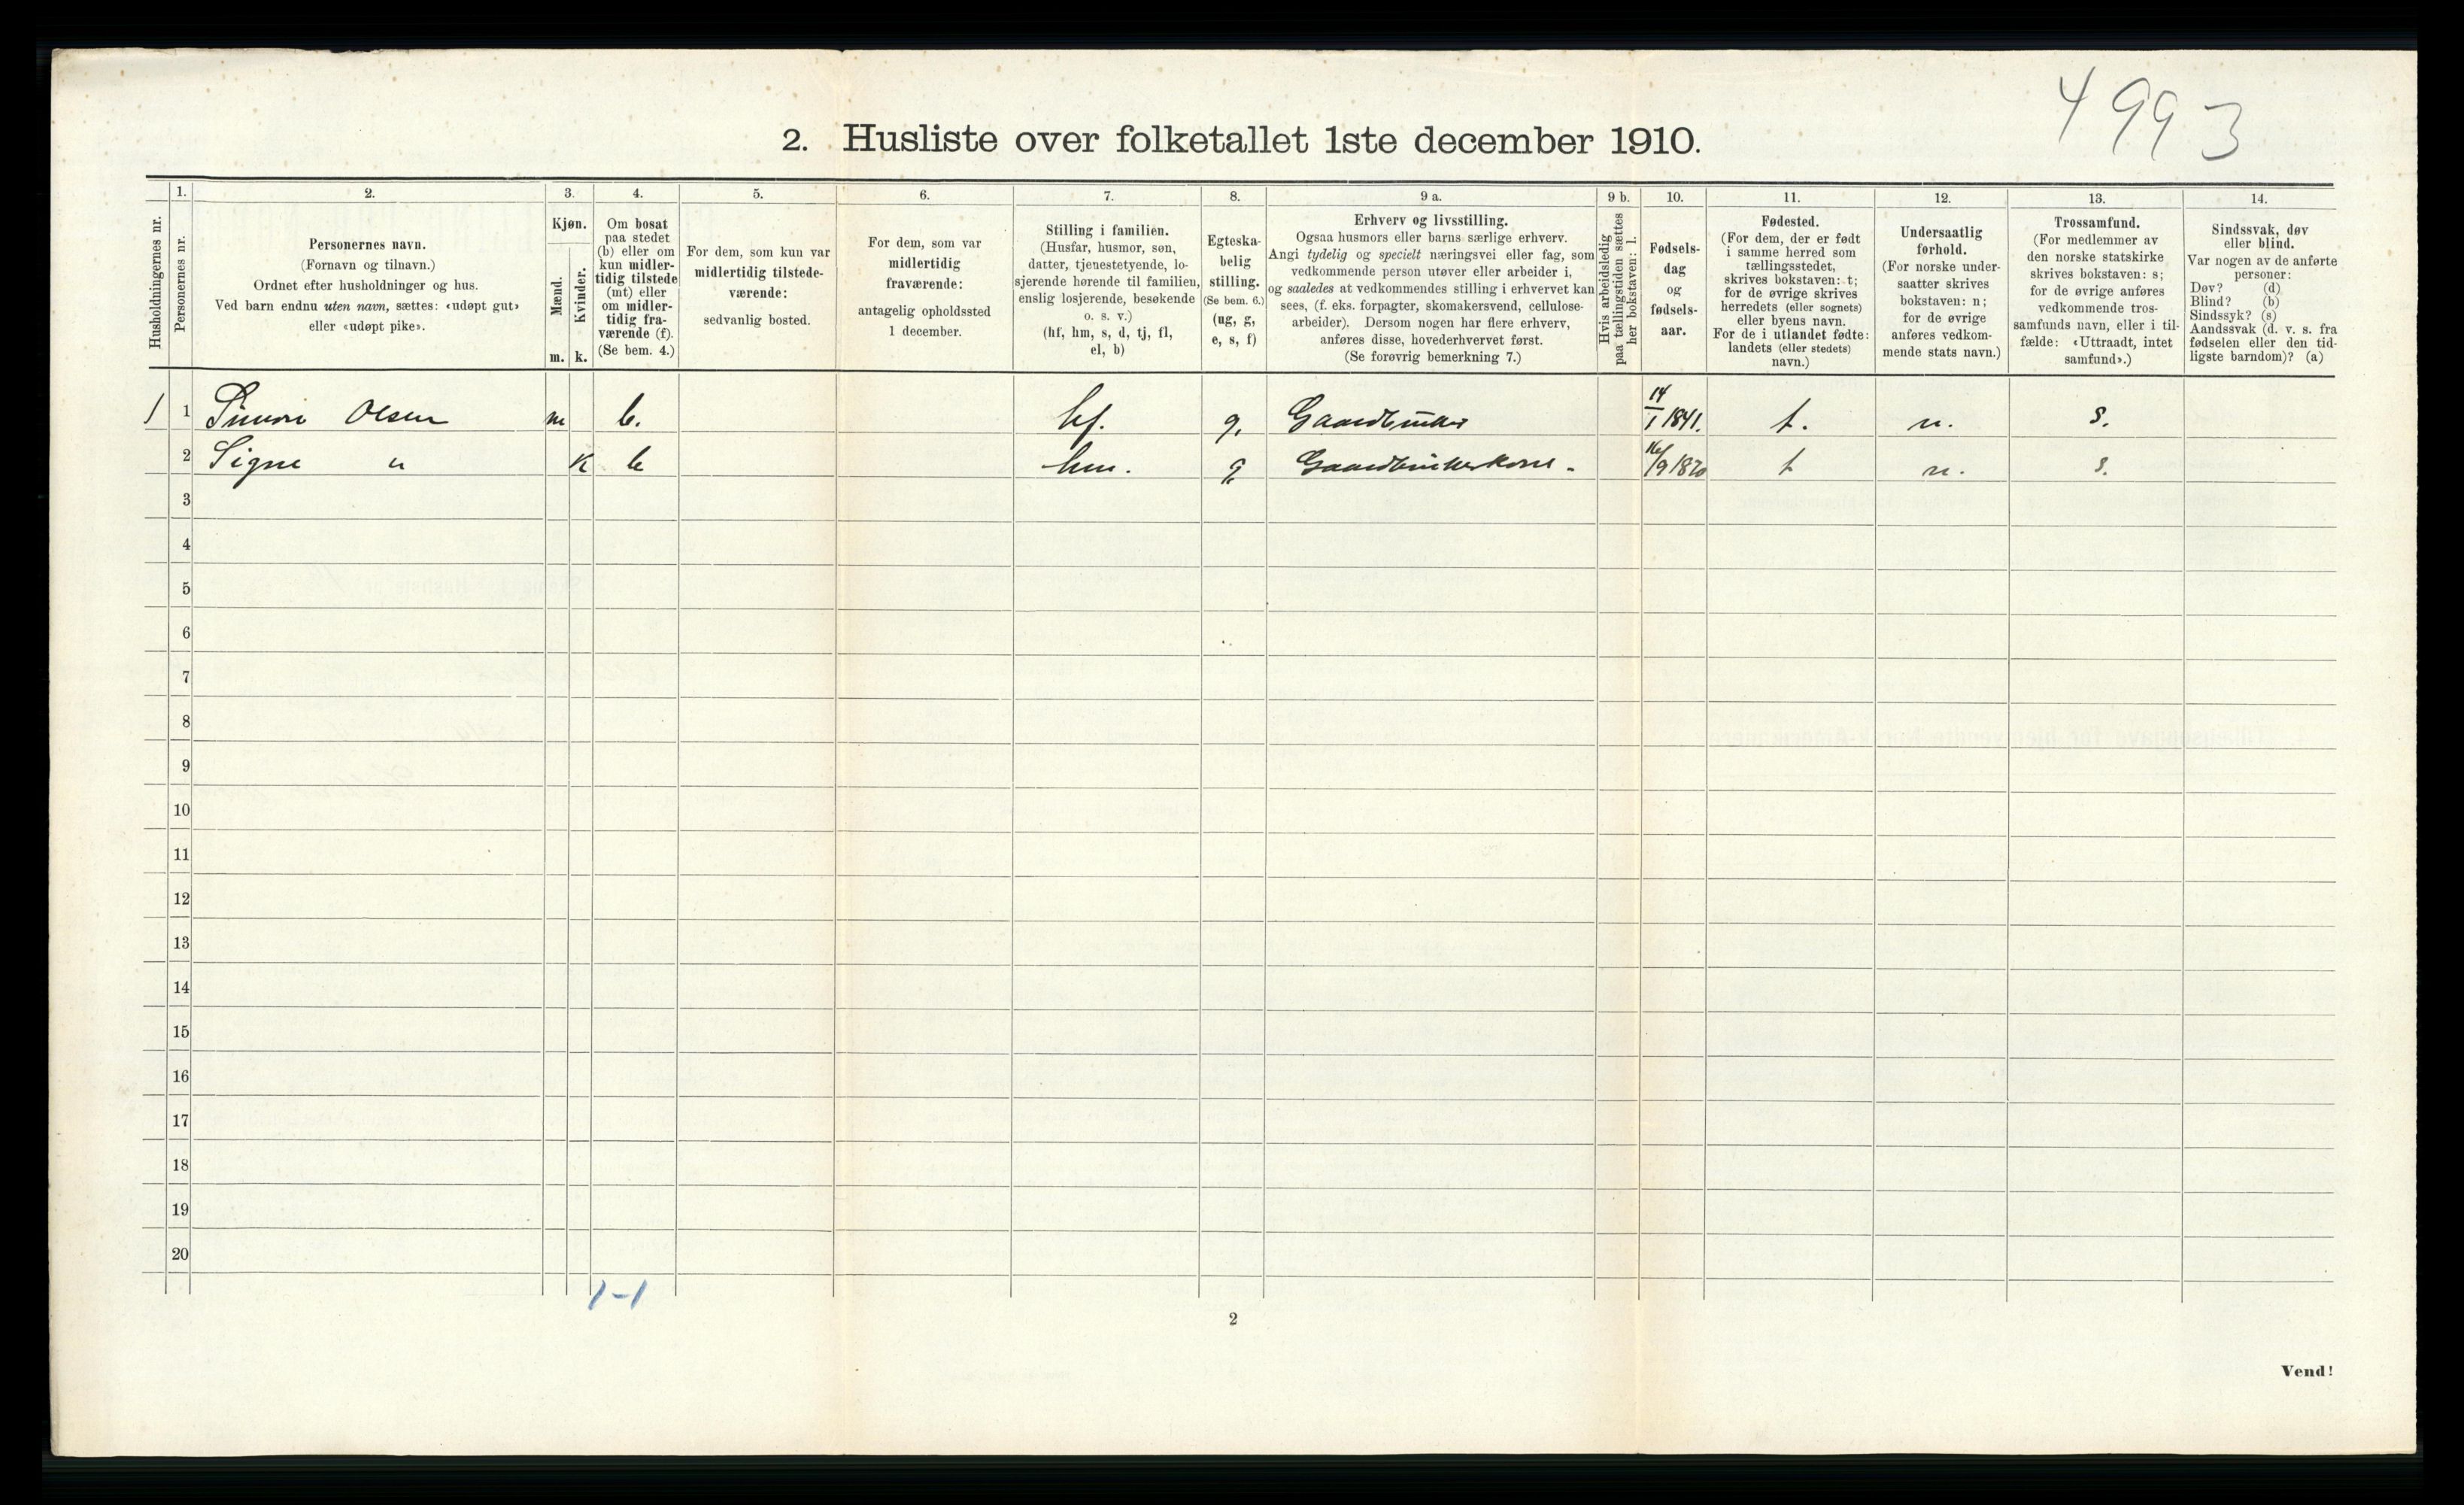 4993
2. Husliste over folketallet 1ste december 1910.
Husholdningernes nr.
1.
Personernes nr.
2.
Personernes navn.
(Fornavn og tilnavn.)
Ordnet efter husholdninger og hus.
Ved barn endnu uten navn, sættes: «udøpt gut»
eller «udøpt pike».
3.
Kjøn.
Mænd.
Kvinder.
m. k.
4.
Om bosat
paa stedet
(b) eller om
kun midler-
tidig tilstede
(mt) eller
om midler-
tidig fra-
værende (f).
(Se bem. 4.)
5.
For dem, som kun var
midlertidig tilstede-
værende:
sedvanlig bosted.
6.
For dem, som var
midlertidig
fraværende:
antagelig opholdssted
1 december.
7.
Stilling i familien.
(Husfar, husmor, søn,
datter, tjenestetyende, lo-
sjerende hørende til familien,
enslig losjerende, besøkende
o. s. v.)
(hf, hm, s, d, tj, fl,
el, b)
8.
Egteska-
belig
stilling.
(Se bem. 6.)
(ug, g,
e, s, f)
9 a.
Erhverv og livsstilling.
Ogsaa husmors eller barns særlige erhverv.
Angi tydelig og specielt næringsvei eller fag, som
vedkommende person utøver eller arbeider i,
og saaledes at vedkommendes stilling i erhvervet kan
sees, (f. eks. forpagter, skomakersvend, cellulose-
arbeider). Dersom nogen har flere erhverv,
anføres disse, hovederhvervet først.
(Se forøvrig bemerkning 7.)
9 b.
Hvis arbeidsledig
paa tællingstiden sættes
her bokstaven: l.
10.
Fødsels-
dag
og
fødsels-
aar.
11.
Fødested.
(For dem, der er født
i samme herred som
tællingsstedet,
skrives bokstaven: t;
for de øvrige skrives
herredets (eller sognets)
eller byens navn.
For de i utlandet fødte:
landets (eller stedets)
navn.)
12.
Undersaatlig
forhold.
(For norske under-
saatter skrives
bokstaven: n;
for de øvrige
anføres vedkom-
mende stats navn.)
13.
Trossamfund.
(For medlemmer av
den norske statskirke
skrives bokstaven: s;
for de øvrige anføres
vedkommende tros-
samfunds navn, eller i til-
fælde: «Uttraadt, intet
samfund».)
14.
Sindssvak, døv
eller blind.
Var nogen av de anførte
personer:
Døv? (d)
Blind? (b)
Sindssyk? (s)
Aandssvak (d. v. s. fra
fødselen eller den tid-
ligste barndom)? (a)
1 1 Simon Olsen m b. hf. g. Gaardbruker 14/1 1841. t. n. s.
2 Signe " k b hm. g. Gaardbrukerkone. 16/9 1870 t n. s.
3
4
5
6
7
8
9
10
11
12
13
14
15
16
17
18
19
20
1-1
2
Vend!